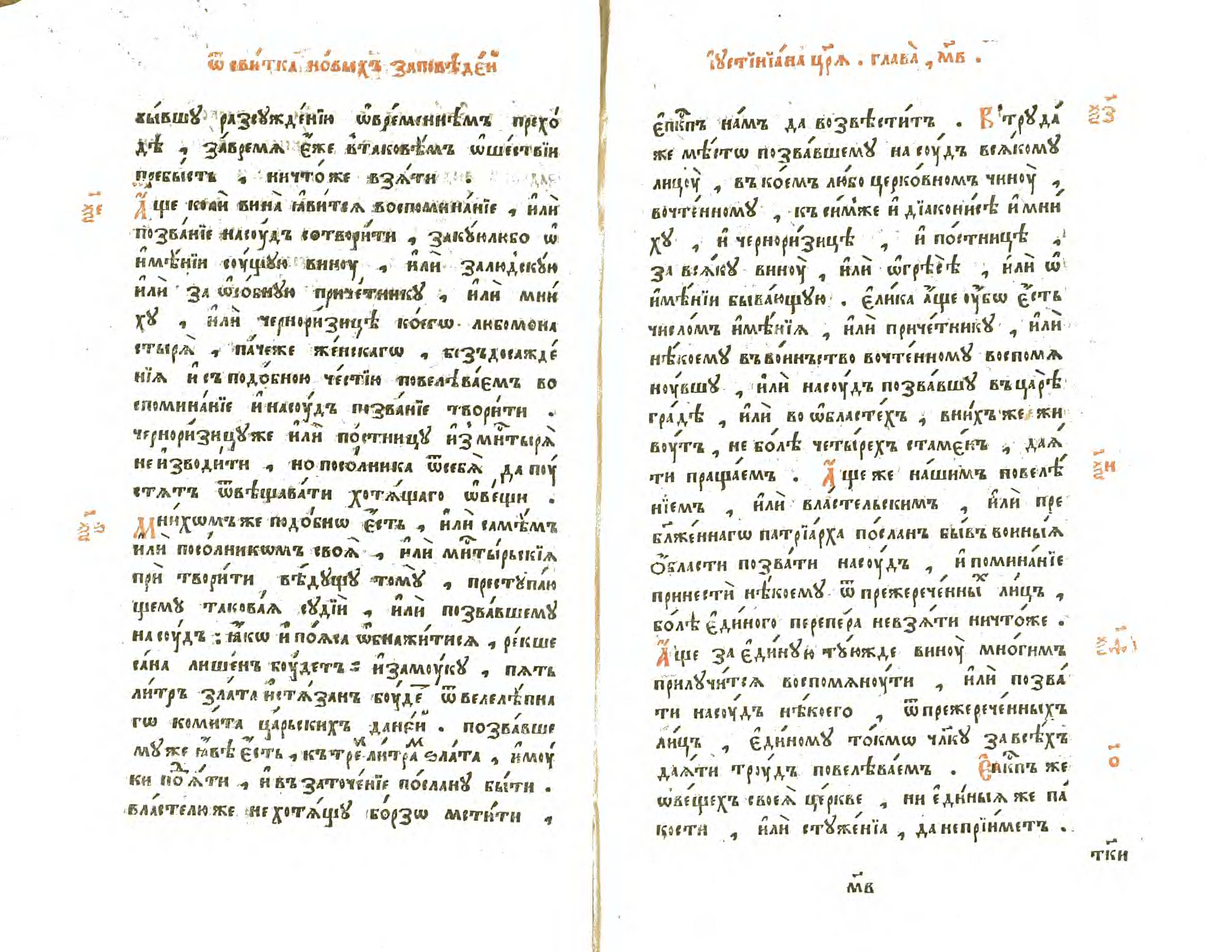 Ѿ сви́тка но́выхъ за́повѣдей
бы́вшу разсужде́нїю ѡ҆вре́меннѣмъ прехо́
дѣ , за́время є҆́же в̾тако́вѣмъ ѡ҆ше́ствїи
пребы́сть , ничто́же взѧ́ти .
а҃хе
А҆́ще ко́ѧй вина̀ ꙗ҆ви́тсѧ воспомина́нїе , и҆лѝ
позва́нїе насꙋ́дъ сотвори́ти , закꙋ́юлибо ѡ҆
и҆мѣ́нїи сꙋ́щꙋю винꙋ̀ , и҆лѝ залюдскꙋ́ю
и҆лѝ за ѡ҆со́бнꙋю приче́тникꙋ , и҆лѝ мни́
хꙋ , и҆лѝ черно́ри́зицѣ ко́егѡ любомона
стырѧ̀ , па́чеже же́нскагѡ , безъдосажде́
нїѧ и҆ съ подо́бною че́стїю повелѣва́емъ во
спомина́нїе и҆ насꙋ́дъ позва́нїе твори́ти .
чернори́зицꙋже и҆лѝ по́стницꙋ и҆з̾ мн҃тырѧ̀
не и҆зводи́ти , но посо́лника ѿ себѧ̀ да поꙋ
стѧтъ ѿвѣщава́ти хотѧ́щаго ѡ҆ ве́щи .
Мни́хѡмъже подо́бнѡ є҆́сть , и҆лѝ самѣ́мъ
и҆лѝ посо́лникѡмъ своѧ̀ , и҆лѝ мн҃ты́рьскїѧ
прѝ твори́ти вѣ́дꙋщꙋ томꙋ̀ , престꙋпа́ю
щемꙋ такова́ѧ сꙋдїѝ , и҆лѝ позва́вшемꙋ
на сꙋ́дъ : ꙗ҆́кѡ и҆ по́ѧса ѡ҆бнажи́тисѧ , ре́кше
са́на лише́нъ бꙋ́детъ : и҆ замꙋ́кꙋ , пѧ́ть
ли́тръ зла́та и҆стѧ́занъ бꙋ́де ѿ велелѣ́пна
гѡ коми́та ца́рьскихъ да́ней . позва́вше
мꙋ же ꙗ҆́вѣ є҆́сть , къ трем ли́трам зла́та , и҆ мꙋ́
ки поѧ́ти , и҆ въ заточе́нїе по́сланꙋ бы́ти .
вла́стелю же не хотѧ́щꙋ бо́рзѡ мсти́ти ,
І҆ꙋстінїа́на цр҃ѧ . глава̀ , м҃в .
є҆п҃кпъ на́мъ да возвѣсти́тъ . В̾ трꙋда́
же мѣ́стѡ позва́вшемꙋ на сꙋ́дъ всѧ́комꙋ
лицꙋ̀ , въ ко́емъ любо церко́вномъ чинꙋ̀ ,
вочте́нномꙋ , къ си́мже и҆ дїаконисѣ и҆ мни́
хꙋ , и҆ чернори́зицѣ , и҆ по́стницѣ ,
за всѧ́кꙋ винꙋ̀ , и҆лѝ ѡ҆ грѣ́сѣ , и҆лѝ ѡ҆
и҆мѣ́нїи быва́ющꙋю . Є҆ли́ка а҆́ще ᲂу҆́бѡ є҆́сть
число́мъ и҆мѣ́нїѧ , и҆лѝ приче́тникꙋ , и҆лѝ
нѣ́коемꙋ въ во́инъство вочте́нномꙋ воспомѧ
нꙋ́вшꙋ , и҆лѝ насꙋ́дъ позва́вшꙋ въ ца́рѣ
гра́дѣ , и҆лѝ во ѡ҆бласте́хъ , вни́хъже жи
вꙋ́тъ , не бо́лѣ четы́рехъ стаме́нъ , даѧ́
ти пращаемъ . А҆́ще же на́шимъ повелѣ́
нїемъ , и҆лѝ вла́стельскимъ , и҆лѝ пре
бл҃же́ннагѡ патрїа́рха по́сланъ бы́въ во и́ныѧ
ѻ҆́бласти позва́ти насꙋ́дъ , и҆ помина́нїе
принестѝ нѣ́коемꙋ ѿ прежерече́нных ли́цъ ,
бо́лѣ є҆ди́ного перпе́ра не взѧ́ти ничто́же .
А҆́ще за є҆ди́нꙋю тꙋ́южде винꙋ̀ мно́гимъ
прилꙋчи́тсѧ воспомѧнꙋ́ти , и҆лѝ позва́
ти насꙋ́дъ нѣ́коего , ѿ прежерече́нныхъ
ли́цъ , є҆ди́номꙋ то́кмѡ чл҃кꙋ за всѣ́хъ
даѧ́ти трꙋ́дъ повелѣва́емъ . Є҆п҃кпъ же
ѡ҆ ве́щехъ своеѧ̀ це́ркве , ни є҆ди́ныѧ же па́
кости , и҆лѝ стꙋже́нїѧ , да не прїи́метъ .
о҃
тки
м҃в